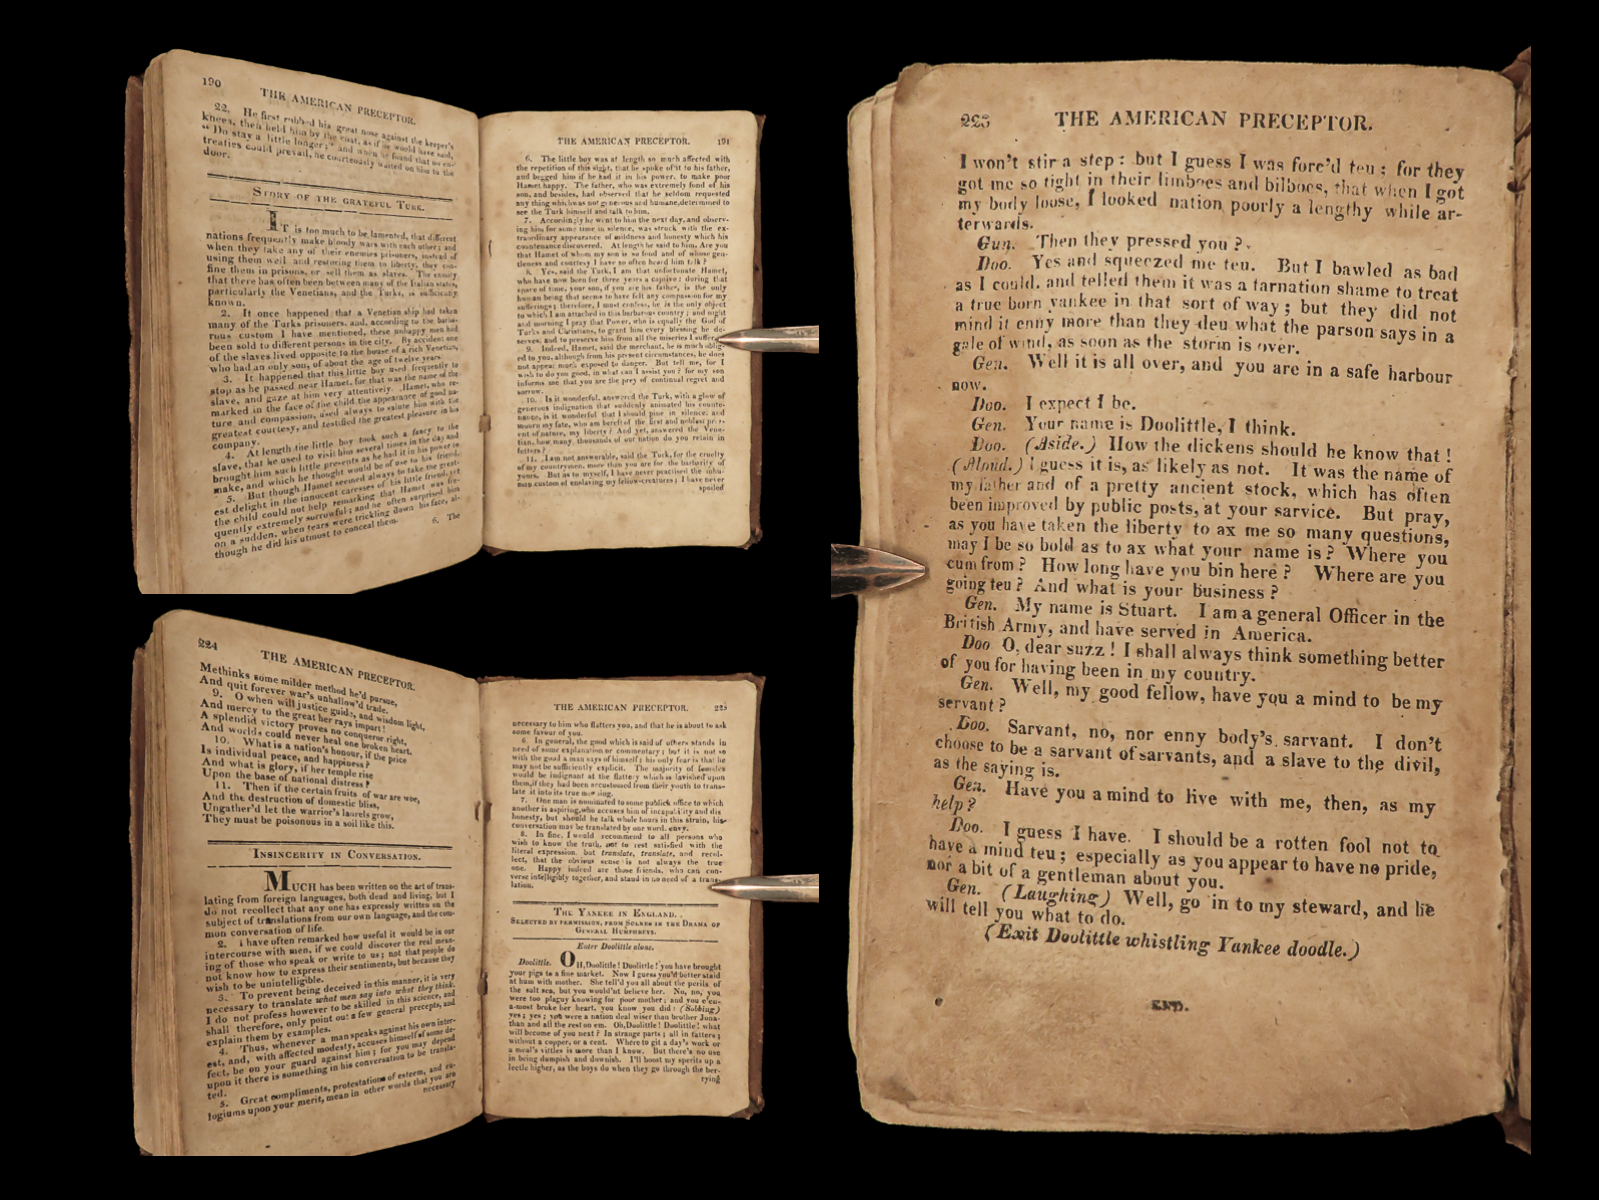 190
THE AMERICAN PRECEPTOR.
22. He first rubbed his great nose against the keeper's
knees, then held him by the coat, as if he would have said,
"Do stay a little longer;" and when he found that no en-
treaties could prevail, he courteously waited on him to the
door.
STORY OF THE GRATEFUL TURK.
IT is too much to be lamented, that different
nations frequently make bloody wars with each other; and
when they take any of their enemies prisoners, instead of
using them well and restoring them to liberty, they con-
fine them in prisons, or sell them as slaves. The enmity
that there has often been between many of the Italian states,
particularly the Venetians, and the Turks, is sufficiently
known.
2. It once happened that a Venetian ship had taken
many of the Turks prisoners, and, according to the barba-
rous custom I have mentioned, these unhappy men had
been sold to different persons in the city. By accident one
of the slaves lived opposite to the house of a rich Venetian,
who had an only son, of about the age of twelve years.
3. It happened that this little boy used frequently to
stop as he passed near Hamet, for that was the name of the
slave, and gaze at him very attentively. Hamet, who re-
marked in the face of the child the appearance of good na-
ture and compassion, used always to salute him with the
greatest courtesy, and testified the greatest pleasure in his
company.
4. At length the little boy took such a fancy to the
slave, that he used to visit him several times in the day and
brought him such little presents as he had it in his power to
make, and which he thought would be of use to his friend.
5. But though Hamet seemed always to take the great-
est delight in the innocent caresses of his little friend, yet
the child could not help remarking that Hamet was fre-
quently extremely sorrowful; and he often surprised him
on a sudden, when tears were trickling down his face, al-
though he did his utmost to conceal them.
6. The
THE AMERICAN PRECEPTOR. 191
6. The little boy was at length so much affected with
the repetition of this sight, that he spoke of it to his father,
and begged him if he had it in his power, to make poor
Hamet happy. The father, who was extremely fond of his
son, and besides, had observed that he seldom requested
any thing which was not generous and humane, determined to
see the Turk himself and talk to him.
7. Accordingly he went to him the next day, and observ-
ing him for some time in silence, was struck with the ex-
traordinary appearance of mildness and honesty which his
countenance discovered. At length he said to him, Are you
that Hamet of whom my son is so fond and of whose gen-
tleness and courtesy I have so often heard him talk?
8. Yes, said the Turk, I am that unfortunate Hamet,
who have now been for three years a captive; during that
space of time, your son, if you are his father, is the only
human being that seems to have felt any compassion for my
sufferings; therefore, I must confess, he is the only object
to which I am attached in this barbarous country; and night
and morning I pray that Power, who is equally the God of
Turks and Christians, to grant him every blessing he de-
serves, and to preserve him from all the miseries I suffer.
9. Indeed, Hamet, said the merchant, he is much oblig-
ed to you, although from his present circumstances, he does
not appear much exposed to danger. But tell me, for I
wish to do you good, in what can I assist you? for my son
informs me that you are the prey of continual regret and
sorrow.
10. Is it wonderful, answered the Turk, with a glow of
generous indignation that suddenly animated his counte-
nance, is it wonderful that I should pine in silence, and
mourn my fate, who am bereft of the first and noblest pres-
ent of nature, my liberty? And yet, answered the Vene-
tian, how many thousands of our nation do you retain in
fetters?
11. I am not answerable, said the Turk, for the cruelty
of my countrymen, more than you are for the barbarity of
yours. But as to myself, I have never practised the inhu-
man custom of enslaving my fellow-creatures; I have never
spoiled
224
THE AMERICAN PRECEPTOR.
Methinks some milder method he'd pursue,
And quit forever war's unhallow'd trade.
9. O when will justice guide, and wisdom light,
And mercy to the great her rays impart!
A splendid victory proves no conqueror right,
And worlds could never heal one broken heart.
10. What is a nation's honour, if the price
Is individual peace, and happiness?
And what is glory, if her temple rise
Upon the base of national distress?
11. Then if the certain fruits of war are woe,
And the destruction of domestic bliss,
Ungather'd let the warrior's laurels grow,
They must be poisonous in a soil like this.
INSINCERITY IN CONVERSATION.
MUCH has been written on the art of trans-
lating from foreign languages, both dead and living, but I
do not recollect that any one has expressly written on the
subject of translations from our own language, and the com-
mon conversation of life.
2. I have often remarked how useful it would be in our
intercourse with men, if we could discover the real mean-
ing of those who speak or write to us; not that people do
not know how to express their sentiments, but because they
wish to be unintelligible.
3. To prevent being deceived in this manner, it is very
necessary to translate what men say into what they think.
I do not profess however to be skilled in this science, and
shall therefore, only point out a few general precepts, and
explain them by examples.
4. Thus, whenever a man speaks against his own inter-
est, and, with affected modesty, accuses himself of some de-
fect, be on your guard against him; for you may depend
upon it there is something in his conversation to be transla-
ted.
5. Great compliments, protestations of esteem, and eu-
logiums upon your merit, mean in other words that you are
necessary
THE AMERICAN PRECEPTOR. 225
necessary to him who flatters you, and that he is about to ask
some favour of you.
6. In general, the good which is said of others stands in
need of some explanation or commentary; but it is not so
with the good a man says of himself; his only fear is that he
may not be sufficiently explicit. The majority of females
would be indignant at the flattery which is lavished upon
them, if they had been accustomed from their youth to trans-
late it into its true meaning.
7. One man is nominated to some publick office to which
another is aspiring, who accuses him of incapability and dis
honesty, but should he talk whole hours in this strain, his
conversation may be translated by one word, envy.
8. In fine, I would recommend to all persons who
wish to know the truth, not to rest satisfied with the
literal expression, but translate, translate, and recol-
lect, that the obvious sense is not always the true
one. Happy indeed are those friends, who can con-
verse intelligibly together, and stand in no need of a trans-
lation.
THE YANKEE IN ENGLAND.
SELECTED BY PERMISSION, FROM SCENES IN THE DRAMA OF
GENERAL HUMPHREYS.
Enter Doolittle alone.
Doolittle. OH, Doolittle! Doolittle! you have brought
your pigs to a fine market. Now I guess you'd better staid
at hum with mother. She tell'd you all about the perils of
the salt sea, but you would'nt believe her. No, no, you
were too plaguy knowing for poor mother; and you e'en-
a-most broke her heart, you know you did: (Sobbing)
yes; yes; you were a nation deal wiser than brother Jona-
than and all the rest on em. Oh, Doolittle! Doolittle! what
will become of you next? In strange parts; all in fatters;
without a copper, or a cent. Where to git a day's work or
a meal's vittles is more than I know. But there's no use
in being dumpish and downish. I'll boost my sperits up a
leetle higher, as the boys do when they go through the ber-
rying
228 THE AMERICAN PRECEPTOR.
I won't stir a step: but I guess I was forc'd teu; for they
got me so tight in their limboes and bilboes, that when I got
my body loose, I looked nation poorly a lengthy while ar-
terwards.
Gen. Then they pressed you?
Doo. Yes and squeezed me teu. But I bawled as bad
as I could, and telled them it was a tarnation shame to treat
a true born yankee in that sort of way; but they did not
mind it enny more than they deu what the parson says in a
gale of wind, as soon as the storm is over.
Gen. Well it is all over, and you are in a safe harbour
now.
Doo. I expect I be.
Gen. Your name is Doolittle, I think.
Doo. (Aside.) How the dickens should he know that!
(Aloud.) I guess it is, as likely as not. It was the name of
my father and of a pretty ancient stock, which has often
been improved by public posts, at your sarvice. But pray,
as you have taken the liberty to ax me so many questions,
may I be so bold as to ax what your name is? Where you
cum from? How long have you bin here? Where are you
going teu? And what is your business?
Gen. My name is Stuart. I am a general Officer in the
British Army, and have served in America.
Doo O, dear suzz! I shall always think something better
of you for having been in my country.
Gen. Well, my good fellow, have you a mind to be my
servant?
Doo. Sarvant, no, nor enny body's sarvant. I don't
choose to be a sarvant of sarvants, and a slave to the divil,
as the saying is.
Gen. Have you a mind to live with me, then, as my
help?
Doo. I guess I have. I should be a rotten fool not to
have a mind teu; especially as you appear to have no pride,
nor a bit of a gentleman about you.
Gen. (Laughing) Well, go in to my steward, and he
will tell you what to do.
(Exit Doolittle whistling Yankee doodle.)
END.